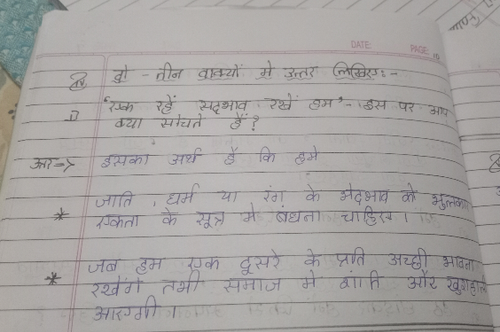 DATE PAGE
दो - तीन वाक्यों मे उत्तर लिखिए:-
1) 'एक रहें सद्भाव रखें हम' - इस पर आप
क्या सोचते हैं?
इसका अर्थ हैं कि हमे
* जाति, धर्म या रंग के भेदभाव को भुलाकर
एकता के सूत्र मे बंधना चाहिए।
* जब हम एक दूसरे के प्रति अच्छी भावना
रखेंगे तभी समाज मे शांति और
आएगी।